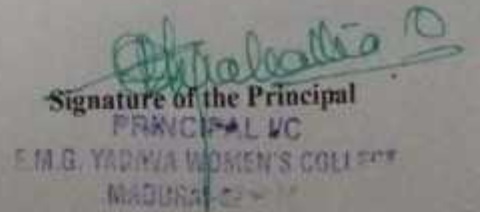 Signature of the Principal
PRINCIPAL I/C
E.M.G. YADAVA WOMEN'S COLLEGE
MADURAI